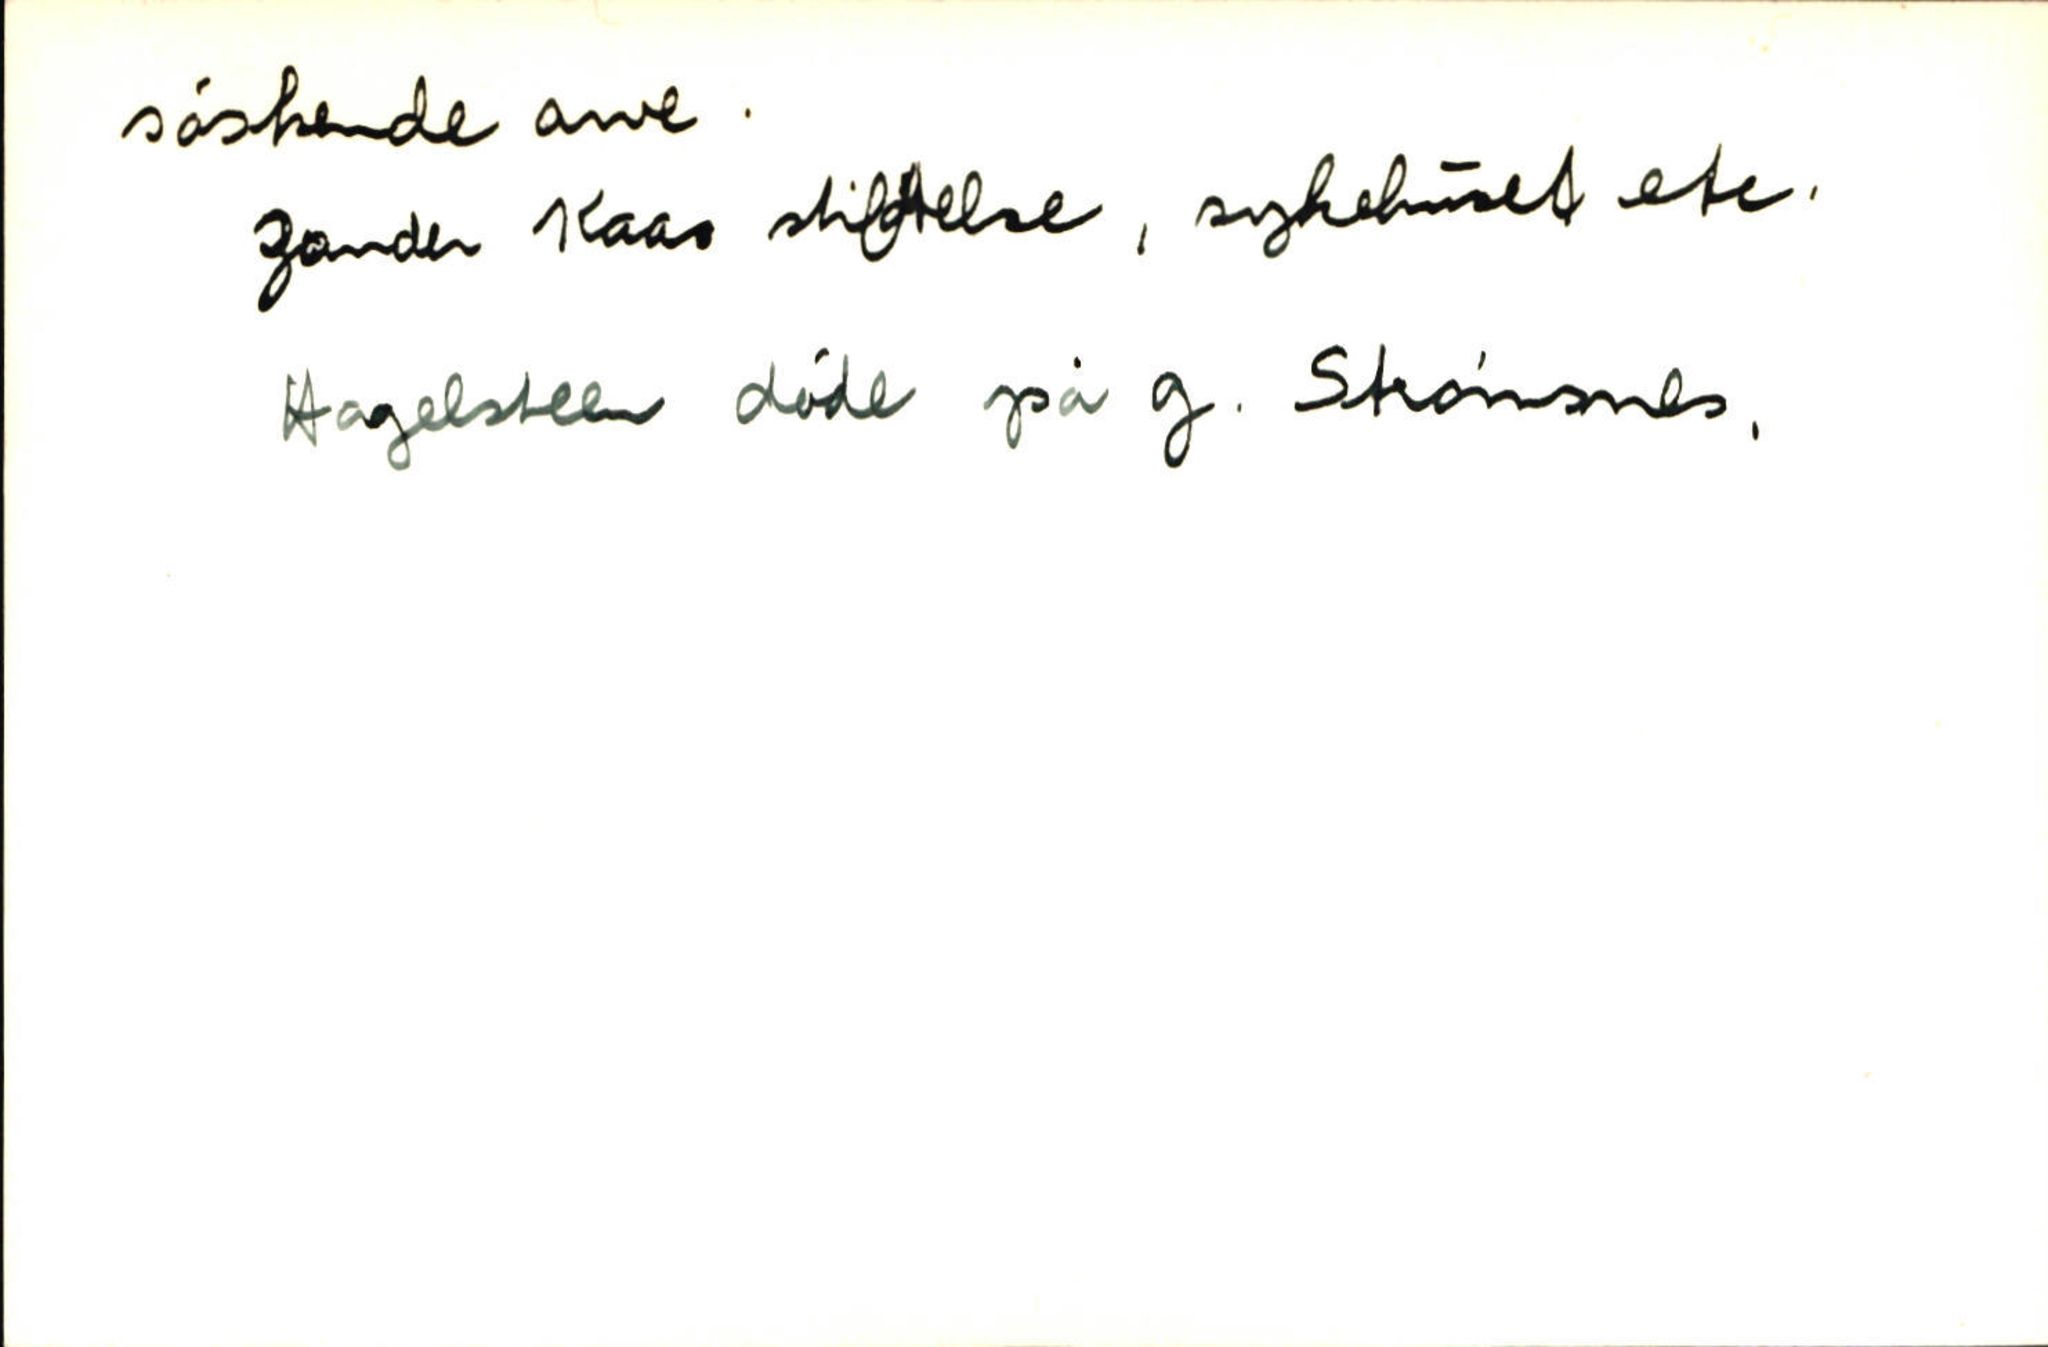 söskende arve.
Zander Kaas stiftelse, sykehuset etc.
Hagelsteen døde på g. Strømsnes.